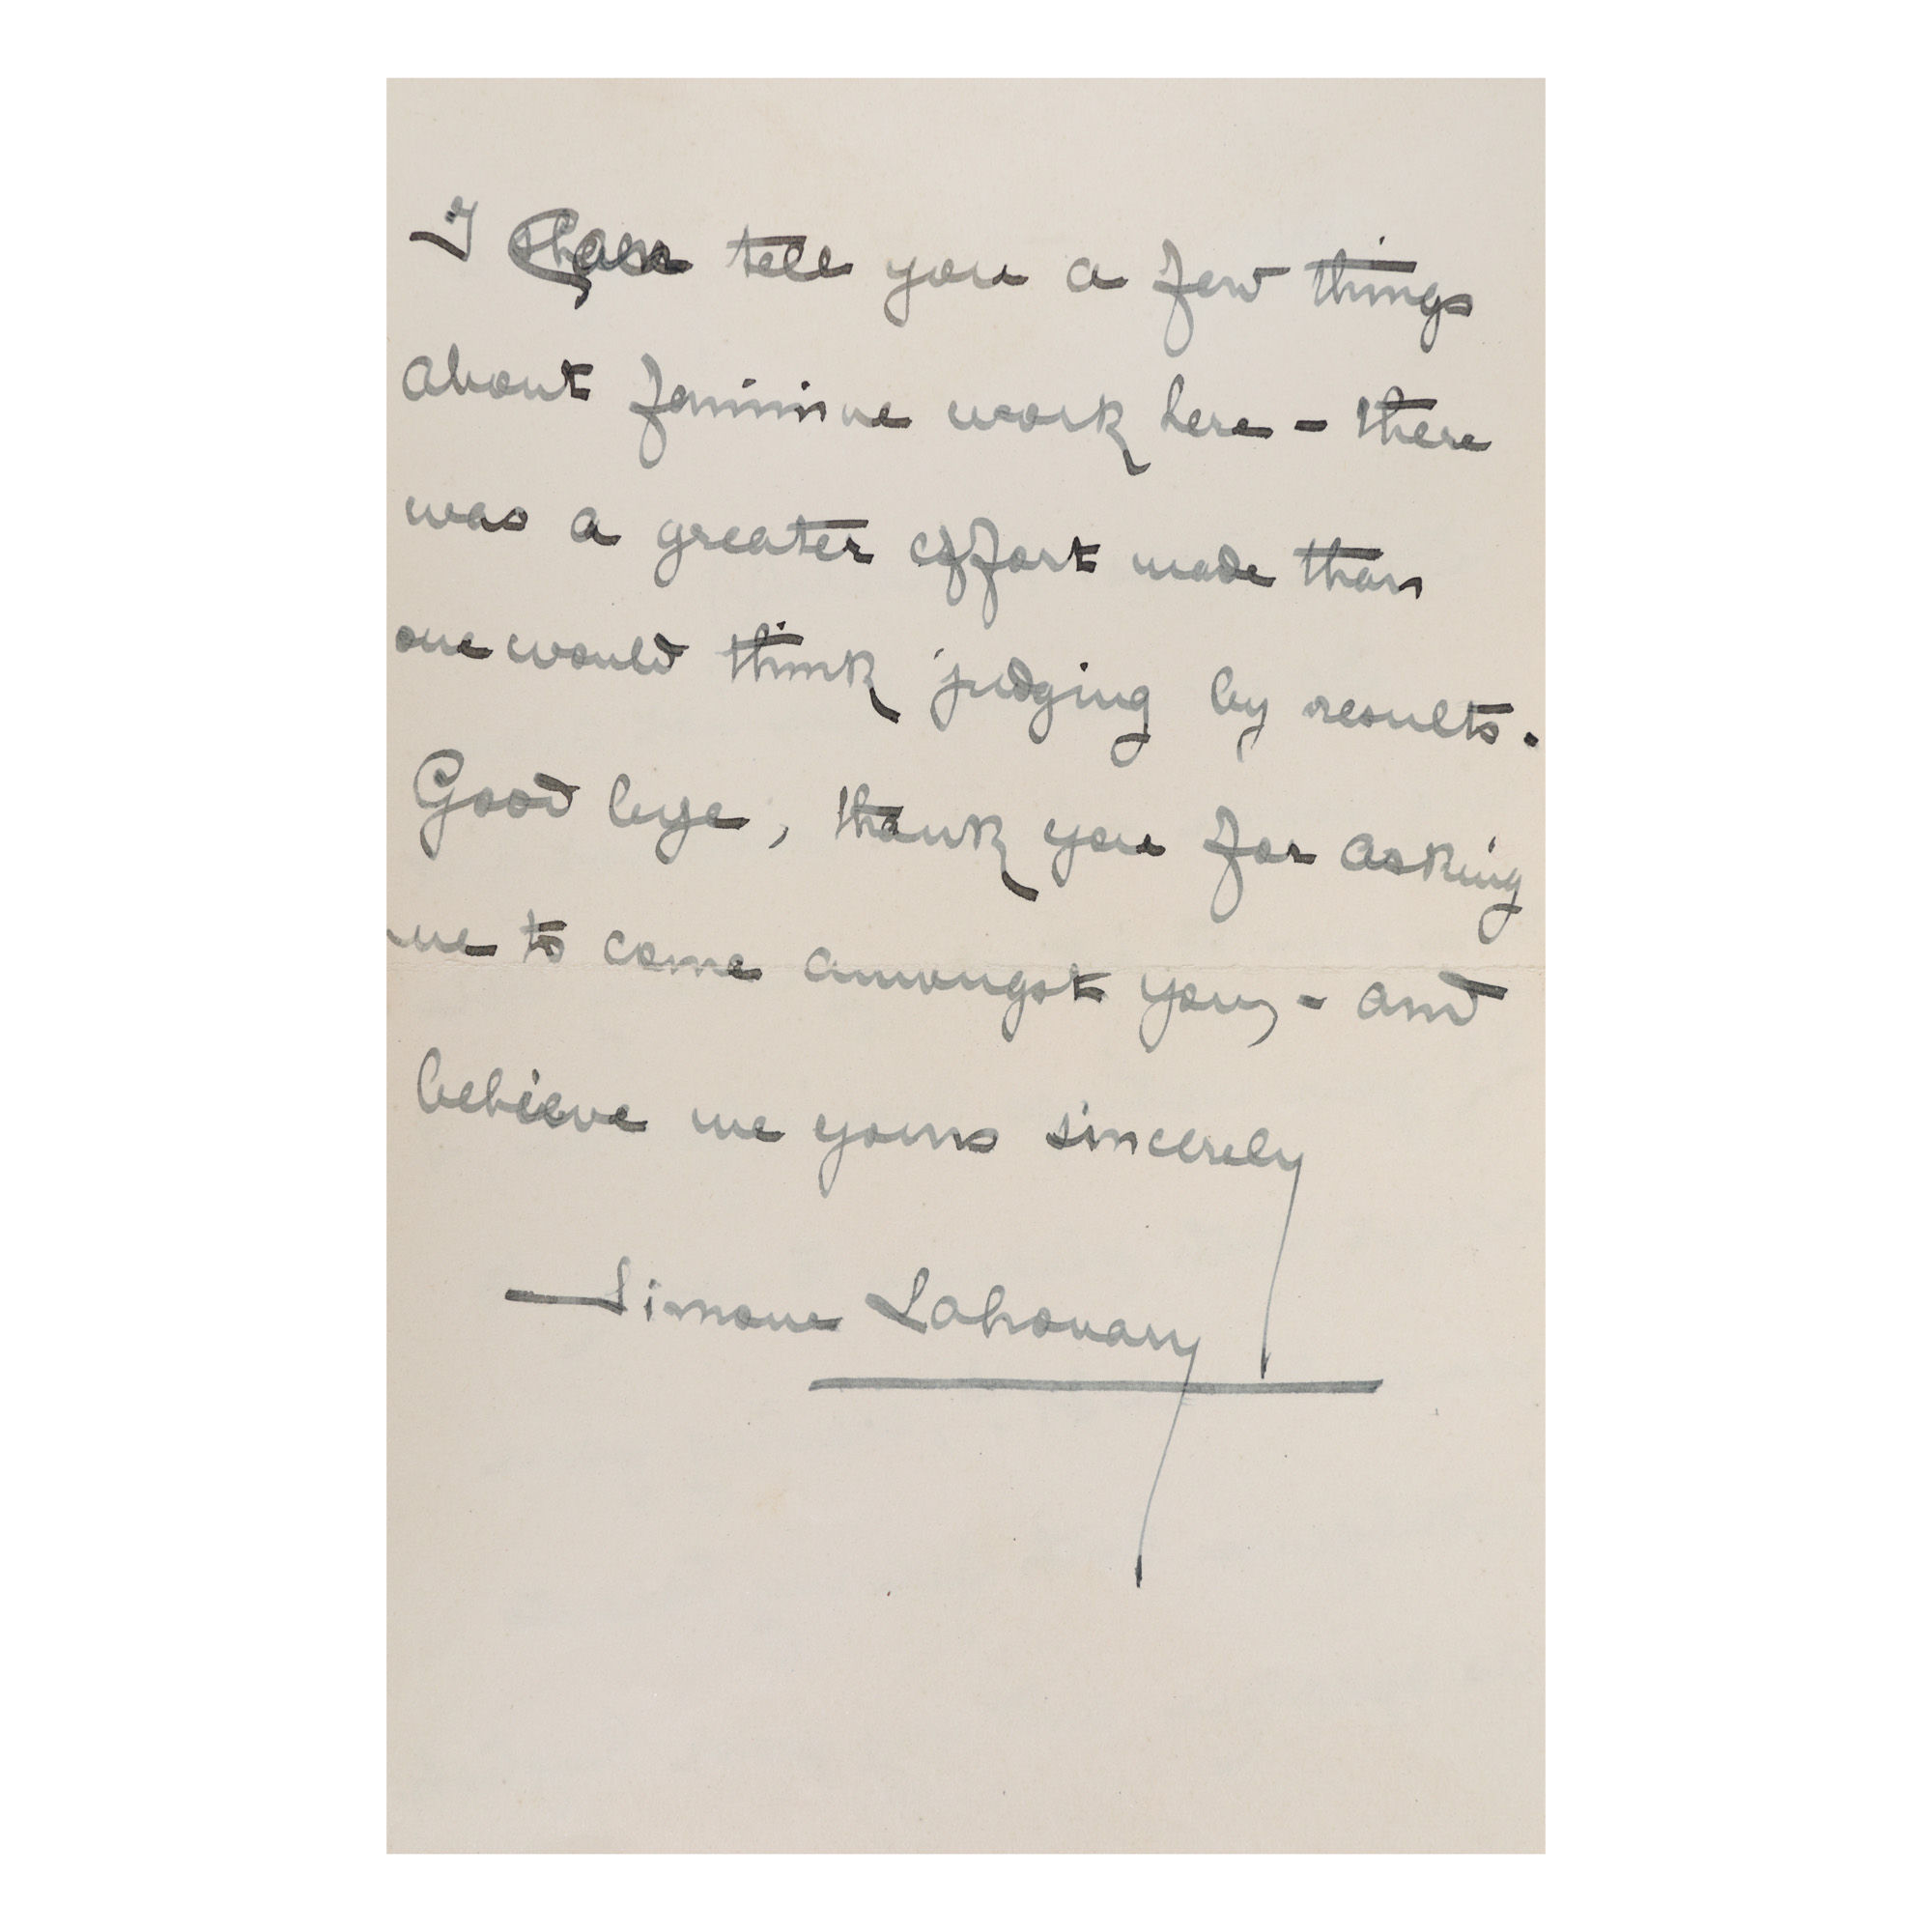 I can tell you a few things
about feminine work here - there
was a greater effort made than
one would think judging by results.
Good bye, thank you for asking
me to come amongst you, - and
believe me yours sincerely
Simone Lahovary